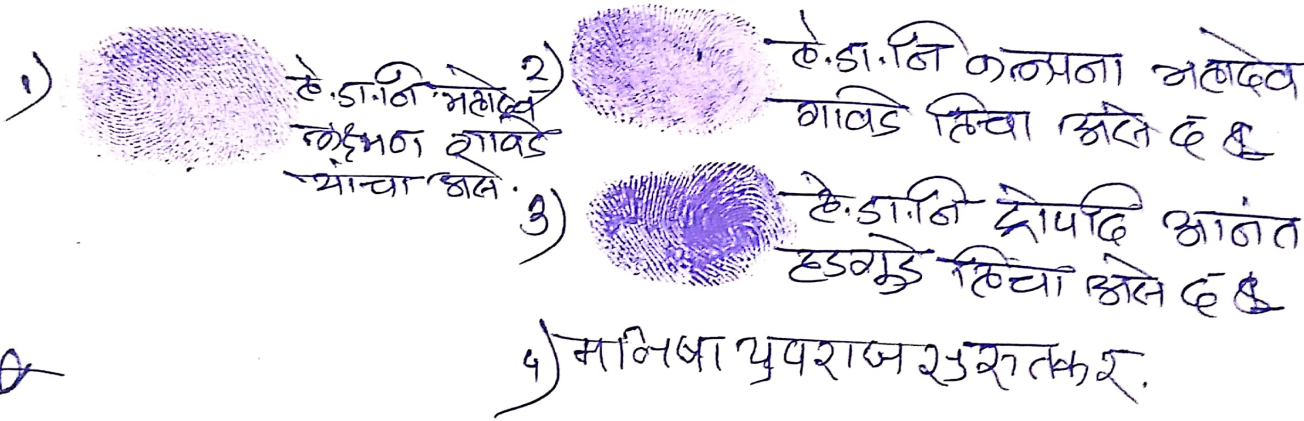 १) हे.डा.नि महादेव
लक्ष्मण गावडे
यांचा असे.
२) हे.डा.नि कल्पना महादेव
गावडे हिचा असे द
३) हे.डा.नि द्रोपदि आनंत
हडगुडे हिचा असे द
४) मनिषा युवराज सुरुतकर.